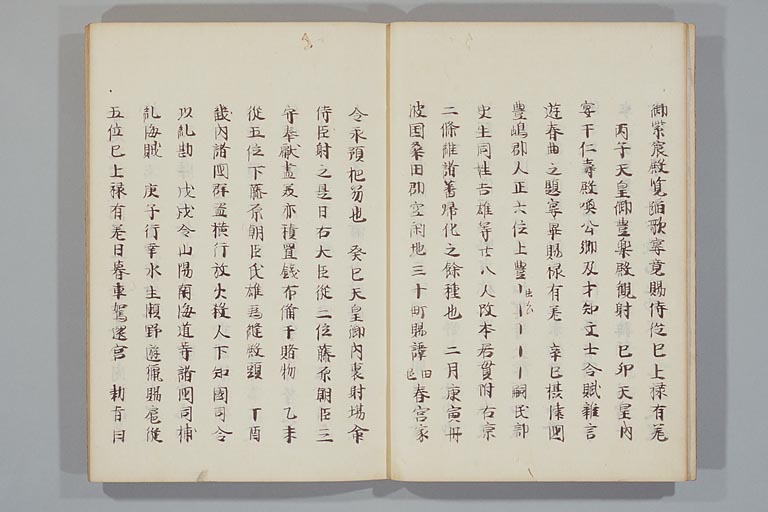 御紫宸殿覧踏歌宴竟賜侍従已上禄有差
丙子天皇御豊楽殿観射 已卯天皇内
宴于仁壽殿喚公卿及才知文士令賦雑言
遊春曲之題宴畢賜禄有差 辛巳摂津国
豊嶋郡人正六位上豊 嗣氏部
史生同姓吉雄等廿八人改本居貫附右京
二條維諸蕃帰化之餘種也 二月庚寅
波国桑田郡空閑地三十町賜譚 春宮家
令乗預把笏也 癸巳天皇御内裏射場命
侍臣射之是日右大臣従二位藤原朝臣三
守奉献盡及亦積置銭布備于賭物 乙未
従五位下藤原朝臣氏雄為縫殿頭 丁酉
畿内諸國群盗横行放火殺人下知國司令
以乱勘 戊戌令山陽南海道等諸國司捕
乱海賊 庚子行幸水生瀬野遊猟賜扈従
五位已上禄有差日暮車駕還宮 勅旨曰